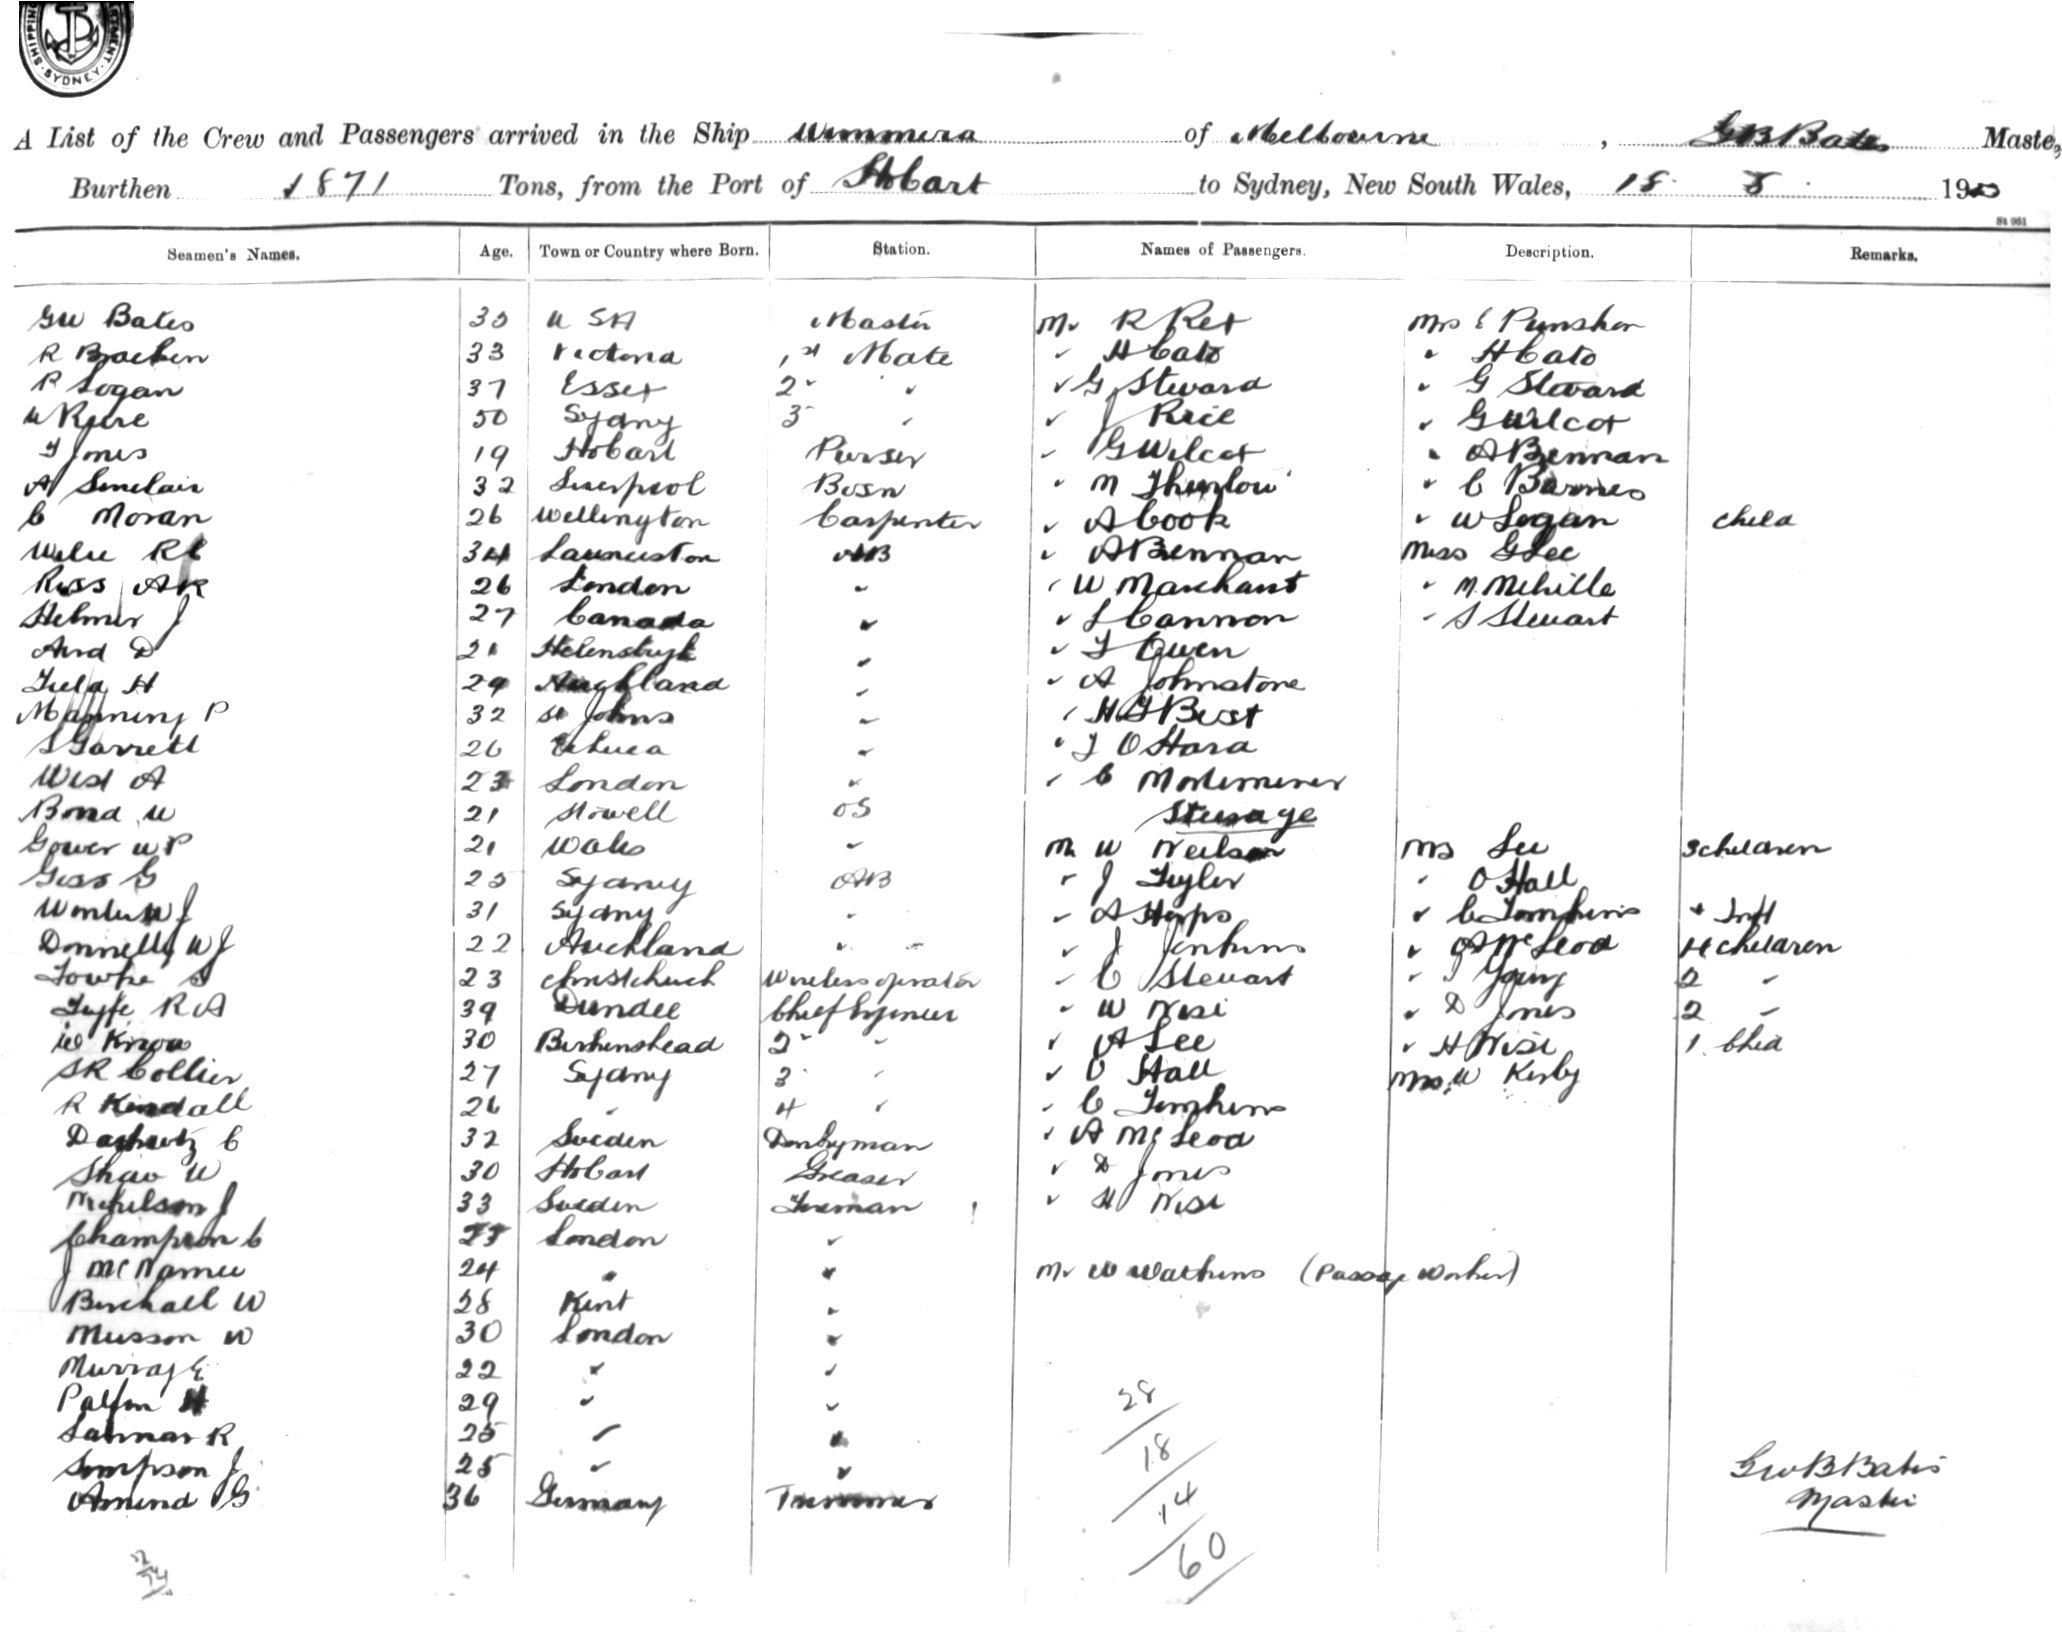 SHIPPING DEPARTMENT · SYDNEY ·
A List of the Crew and Passengers arrived in the Ship Wimmera of Melbourne, G B Bates Maste,
Burthen 1871 Tons, from the Port of Hobart to Sydney, New South Wales, 18 8 19
St 951
Seamen's Names. Age. Town or Country where Born. Station. Names of Passengers. Description. Remarks.
GW Bates 35 U S A Master Mr R Rex Mrs E Punsher
R Bracken 33 Victoria 1st Mate " H Cato " H Cato
R Logan 37 Essex 2 " " " G Steward " G Steward
50 Sydny 3 " " J Rice " G Wilcox
Jones 19 Hobart Purser " G Wilcox " A Bennan
A Sinclair 32 Liverpool Bosn " M Thurlow " C Barnes
C Moran 26 Wellington Carpenter " A Cook " W Logan child
34 Launceston AB " A Bennan Miss G Lee
Ross A R 26 London " " W Marchant " M Melville
Helmer J 27 Canada " " L Cannon " S Stewart
Aird D 21 Helensburgh " " T Owen
H 29 Auckland " " A Johnstone
Manning P 32 St Johns " " H G Best
S Garrett 26 Echuca " " J O Hara
West A 23 London " " C Mortimerer
Bond W 21 Stowell OS Steerage
Gower W P 21 Wales " Mr W Neilson Mrs Lee 3 children
Goss G 25 Sydney AB " J Tayler " O Hall
31 Sydny " " A Harps " C Tomkins + Inft
Donnelly W J 22 Auckland " " " J Jenkins " A McLeod 4 children
S 23 Christchurch Wireless operator " C Stewart " Young 2 "
Fyffe R A 39 Dundee Chief Engineer " W Nisi " D Jones 2 "
W Knox 30 Birkenshead 2 " " " A Lee " H Nisi 1 Child
S R Collier 27 Sydny 3 " " O Hall Mrs W Kirby
R Kendall 26 " 4 " " C Tomkins
C 32 Sweden Donkyman " A McLeod
Shaw W 30 Hobart Greaser " D Jones
Nickelson J 33 Sweden Fireman " H Nisi
Champion C London "
J McNamee 24 " " Mr W Watkins (Passage Worker)
Birchall W 28 Kent "
Musson W 30 London "
Murray E 22 " "
H 29 " "
R 25 " "
Simpson J 25 " "
Amend G 36 Germany Trimmer
28
18
14
60
Geo B Bates
Master